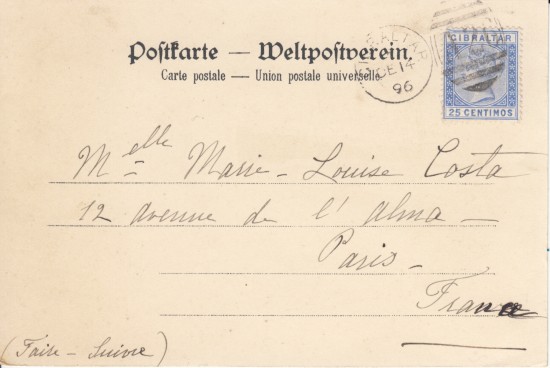 Postkarte — Weltpostverein.
Carte postale — Union postale universelle.
GIBRALTAR
DE 14
96
GIBRALTAR
25 CENTIMOS
Melle Marie-Louise Costa
12 avenue de l'Alma —
Paris-
France
(Faire-Suivre)